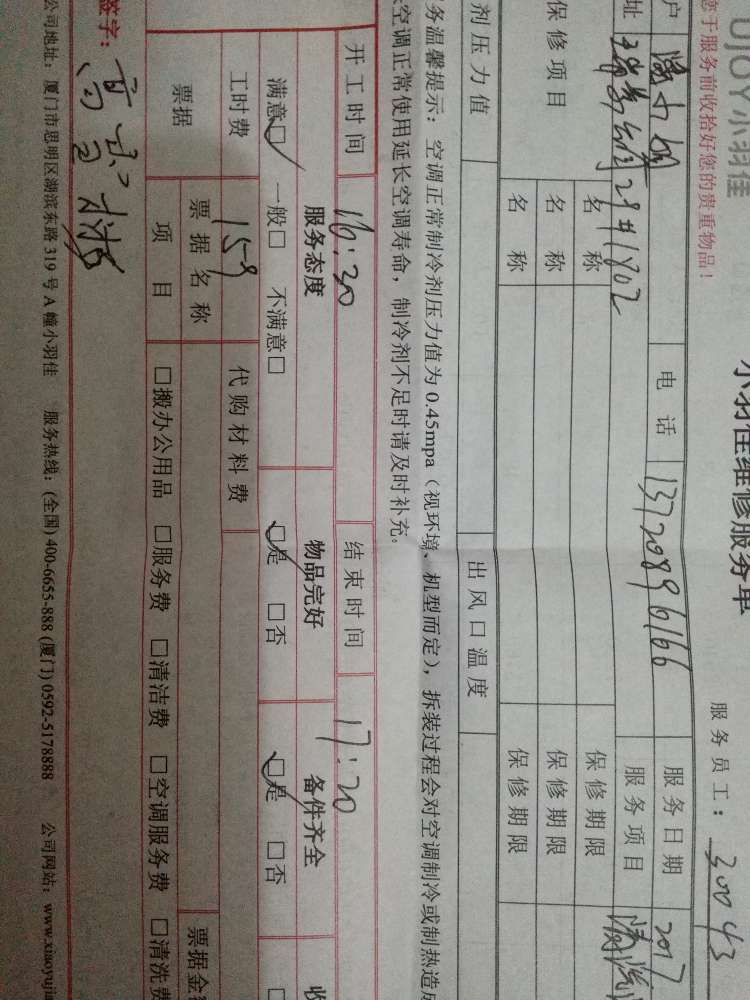 UJOY小羽佳
小羽佳维修服务单
您于服务前收拾好您的贵重物品！
服务员工：30043
户 电话 13720896166 服务日期 2017
址 29#1802 服务项目
保修项目 名称 保修期限
名称 保修期限
名称 保修期限
剂压力值 出风口温度
务温馨提示：空调正常制冷剂压力值为0.45mpa（视环境、机型而定），拆装过程会对空调制冷或制热造成
空调正常使用延长空调寿命，制冷剂不足时请及时补充。
开工时间 16:20 结束时间 17:20
服务态度 物品完好 备件齐全 收
满意□ 一般□ 不满意□ □是 □否 □是 □否 □
工时费 159 代购材料费
票据 票据名称 票据金
项目 □搬办公用品 □服务费 □清洁费 □空调服务费 □清洗费
签字：
公司地址：厦门市思明区湖滨东路319号A幢小羽佳 服务热线：(全国)400-6655-888 (厦门)0592-5178888 公司网站：www.xiaoyujia